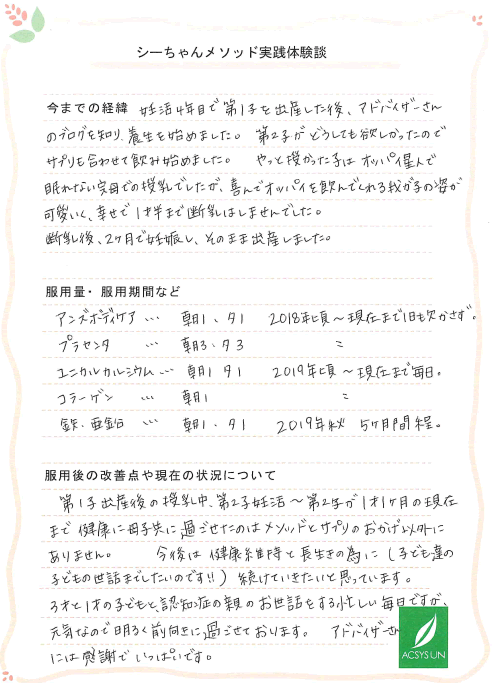 シーちゃんメソッド実践体験談
今までの経緯 妊活4年目で第1子を出産した後、アドバイザーさん
のブログを知り、養生を始めました。 第2子がどうしても欲しかったので
サプリも合わせて飲み始めました。 やっと授かった子は オッパイ星人で
眠れない完母での授乳でしたが、喜んでオッパイを飲んでくれる我が子の姿が
可愛いく、幸せで 1才半まで断乳はしませんでした。
断乳後、2ヶ月で妊娠し、そのまま出産しました。
服用量・服用期間など
アンズボディケア … 朝1、夕1 2018年頃〜現在まで1日も欠かさず。
プラセンタ … 朝3、夕3 〃
ユニカルカルシウム… 朝1 夕1 2019年頃〜現在まで毎日。
コラーゲン … 朝1 〃
鉄・亜鉛 … 朝1、夕1 2019年秋 5ヶ月間程。
服用後の改善点や現在の状況について
第1子出産後の授乳中、第2子妊活〜第2子が1才1ヶ月の現在
まで 健康に母子共に過ごせたのはメソッドとサプリのおかげ以外に
ありません。 今後は健康維持と長生きの為に(子ども達の
子どもの世話までしたいのです!!)続けていきたいと思っています。
3才と1才の子どもと、認知症の親のお世話をする忙しい毎日ですが、
元気なので明るく前向きに過ごせております。 アドバイザーさん
には感謝でいっぱいです。
ACSYSUN